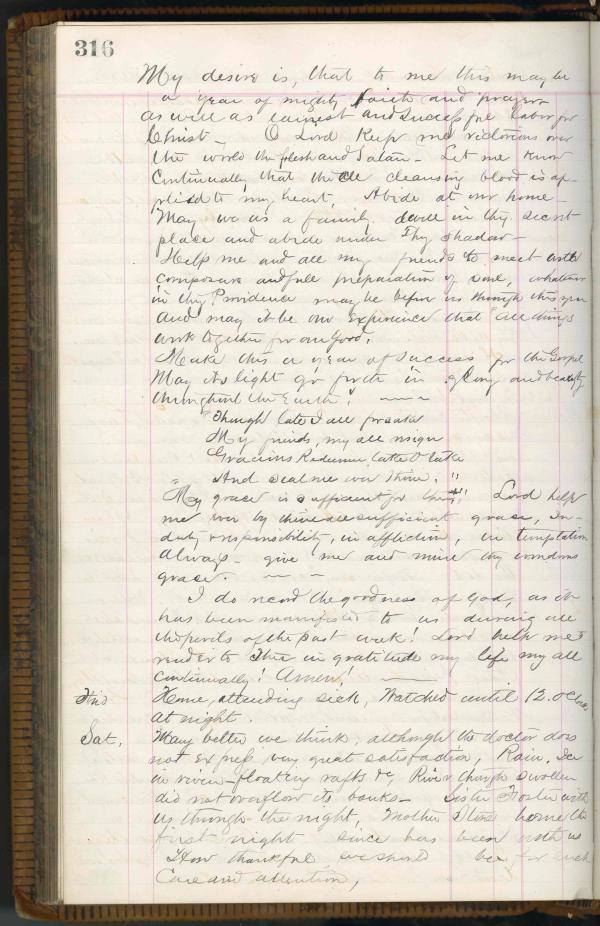 316
My desire is, that to me this may be
a year of mighty faith and prayer
as well as earnest and successful labor for
Christ - O Lord keep me victorious over
the world the flesh and Satan - Let me know
continually that the cleansing blood is ap-
plied to my heart, Abide at our home -
May we as a family, dwell in thy secret
place and abide under Thy shadow -
Help me and all my friends to meet with
composure and full preparation of soul, whatever
in thy Providence may be before us through this year
And may it be our Experience that "all things
work together for our Good.
Make this a year of success for the Gospel
May its light go forth in glory and beauty
throughout the Earth!
"Though late I all forsake
My friends, my all resign
Gracious Redeemer take O take
And seal me ever Thine."
"My grace is sufficient for thee"! Lord help
me ever by thine all sufficient grace, In-
duty & responsibility, in affliction, in temptation
Always - give me and mine thy wondrous
grace. - -
I do record the goodness of God, as it
has been manifested to us during all
the perils of the past week! Lord help me
render to Thee in gratitude my life my all
continually! Amen!
Home, attending sick, Watched until 12. oclock
at night.
Sat, Mary better we think; although the doctor does
not express very great satisfaction, Rain, Ice
in river - floating rafts &c, River though swollen
did not overflow its banks - Sister Foster with
us through the night, Mother home the
first night since has been with us
How thankful we should be for such
Care and attention,